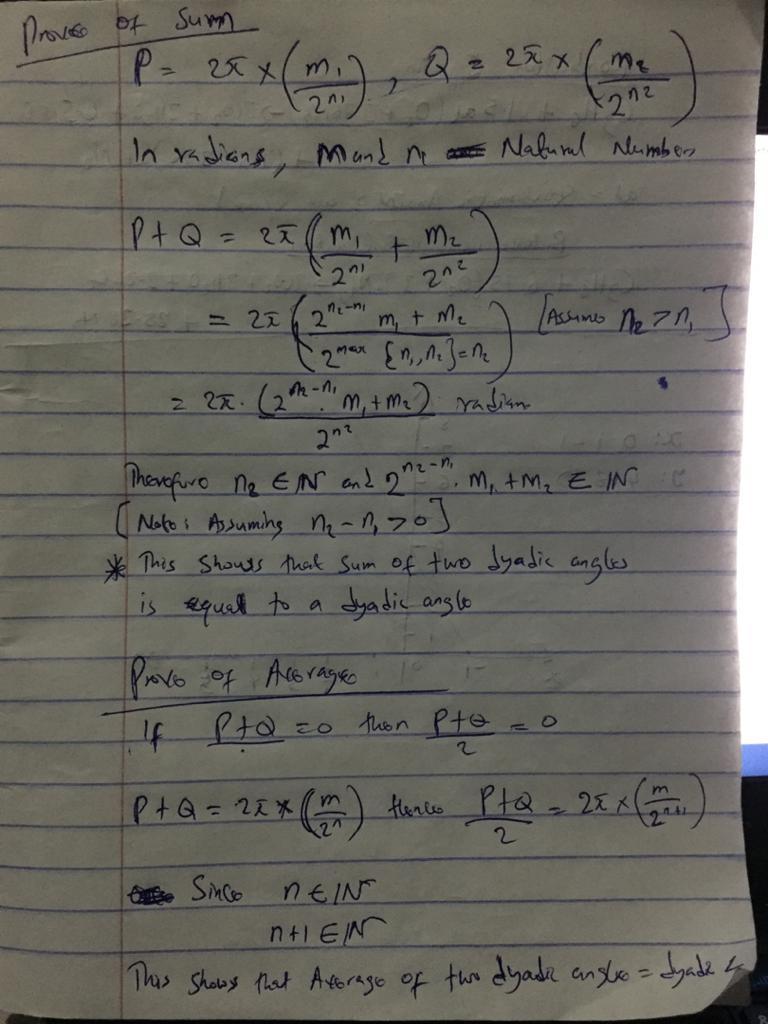 Prove of Sum
P = 2π × (m₁/2ⁿ¹), Q = 2π × (m₂/2ⁿ²)
In radians, m and n Natural Numbers
P + Q = 2π (m₁/2ⁿ¹ + m₂/2ⁿ²)
= 2π (2^(n₂-n₁) m₁ + m₂ / 2^max {n₁, n₂} = n₂) [Assume n₂ > n₁]
= 2π · (2^(n₂-n₁) · m₁ + m₂) / 2ⁿ² radian
Therefore n₂ ∈ ℕ and 2^(n₂-n₁) · m₁ + m₂ ∈ ℕ
[Note: Assuming n₂ - n₁ > 0]
* This shows that sum of two dyadic angles
is equal to a dyadic angle
Prove of Average
If P + Q = 0 then (P + Q)/2 = 0
P + Q = 2π × (m/2ⁿ) hence (P + Q)/2 = 2π × (m/2ⁿ⁺¹)
Since n ∈ ℕ
n+1 ∈ ℕ
This shows that Average of two dyadic angle = dyadic ∠